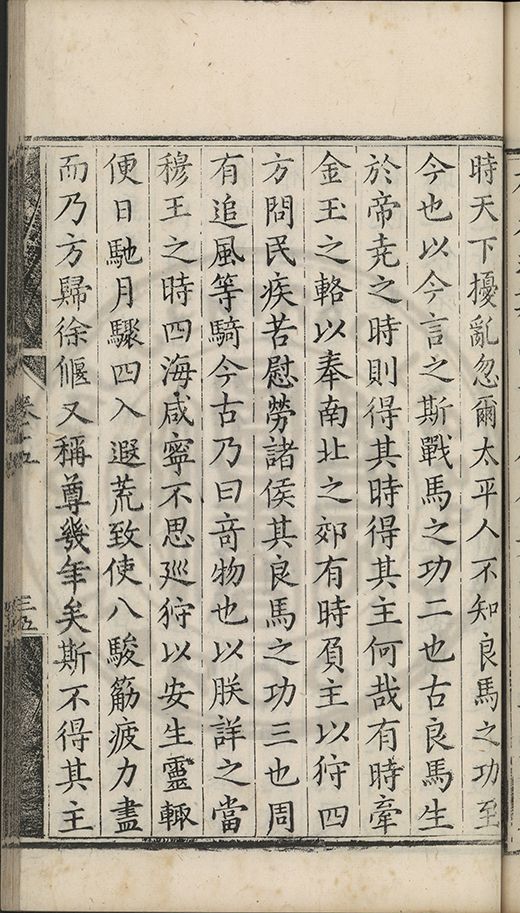 時天下擾亂忽爾太平人不知良馬之功至
今也以今言之斯戰馬之功二也古良馬生
於帝尭之時則得其時得其主何哉有時牽
金玉之輅以奉南北之郊有時負主以狩四
方問民疾苦慰勞諸侯其良馬之功三也周
有追風等騎今古乃曰竒物也以朕詳之當
穆王之時四海咸寧不思廵狩以安生靈輙
便日馳月驟四入遐荒致使八駿觔疲力盡
而乃方歸徐偃又稱尊幾年矣斯不得其主
卷十五